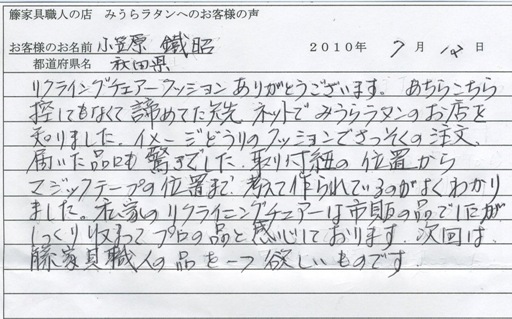 籐家具職人の店 みうらラタンへのお客様の声
お客様のお名前 小笠原 鐵昭 2010年 7月 12日
都道府県名 秋田県
リクライングチェアークッションありがとうございます。あちらこちら
控してもなくて諦めてた矢先 ネットでみうらラタンのお店を
知りました。イメージどうりのクッションでさっそくの注文、
届いた品にも驚きでした。取り付紐の位置から
マジックテープの位置まで考えて作られているのがよくわかり
ました。我家のリクライニングチェアーは市販の品でしたが
しっくり収まって プロの品と感じております。次回は、
籐家具職人の品を一つ欲しいものです。